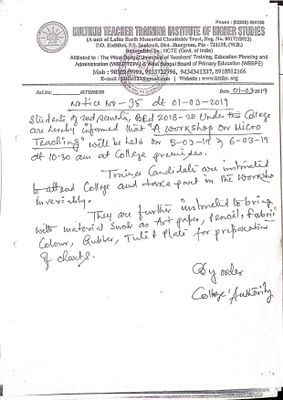 KULTIKRI TEACHER TRAINING INSTITUTE OF HIGHER STUDIES
(A unit of Lalita Rath Memorial Charitable Trust,
P.O. Kultikri, P.S. Sankrail, Dist. Jhargram, Pin - 721135, (W.B.)
Recognised by: NCTE (Govt. of India)
Affiliated to : The West Bengal University of Teachers' Training, Education Planning and
Administration (WBUTTEPA) & West Bengal Board of Primary Education (WBBPE)
Date 01-03-2019
Notice No - 35 dt 01-03-2019
Students of 2nd semester, BEd 2018-20 Under the College
are hereby informed that "A workshop on Micro
Teaching" will be held on 5-03-19 & 6-03-19
at 10:30 am at College premises.
Trainee Candidate are instructed
to attend College and take part in the Workshop
invariably.
They are further instructed to bring
with material such as Art paper, Pencil, Fabric
Colour, Rubber, Plate for preparation
of charts.
By order
College Authority